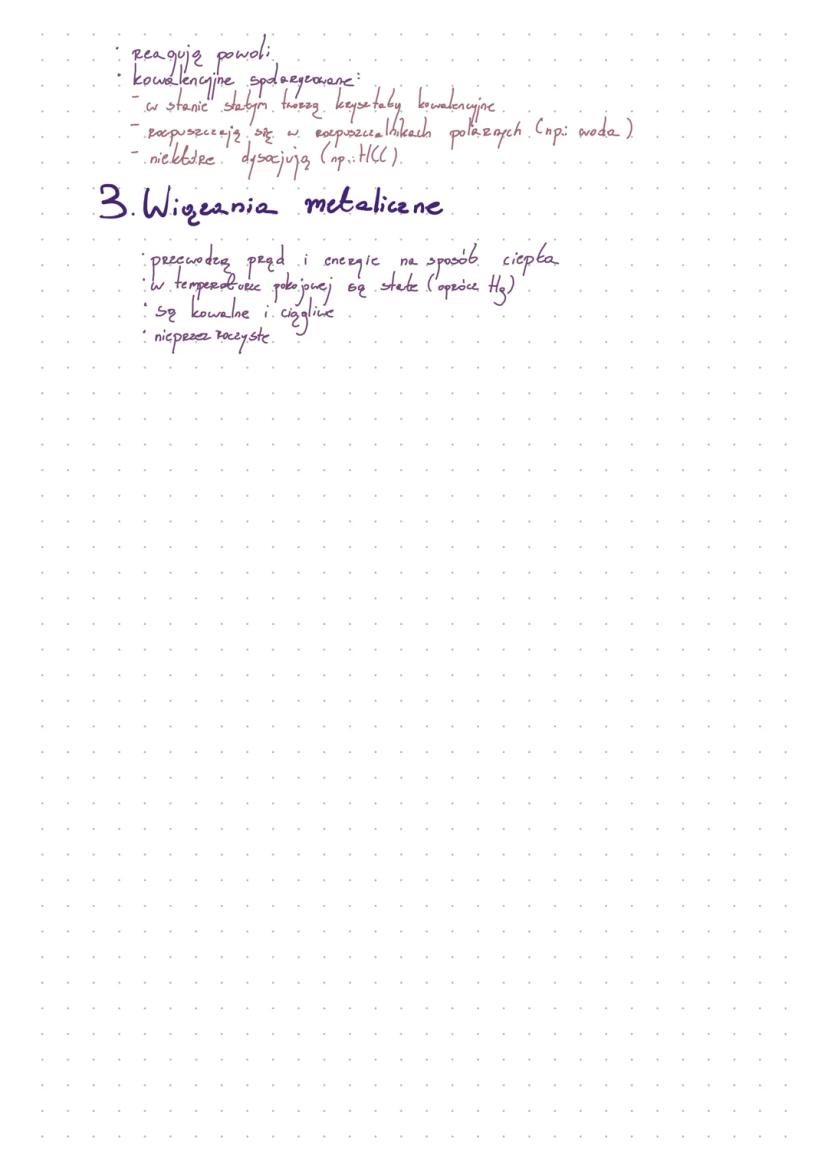 · reagują powoli
· kowalencyjne spolaryzowane:
- w stanie stałym tworzą kryształy kowalencyjne
- rozpuszczają się w rozpuszczalnikach polarnych (np.: woda)
- niektóre dysocjują (np.: HCl)
3. Wiązania metaliczne
· przewodzą prąd i energię na sposób ciepła
· w temperaturze pokojowej są stałe (oprócz Hg)
· są kowalne i ciągliwe
· nieprzezroczyste